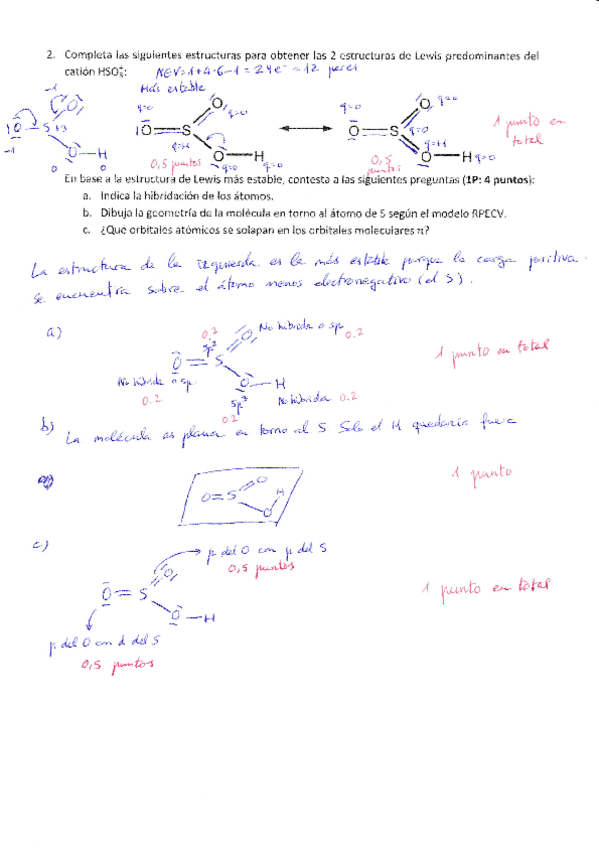 2. Completa las siguientes estructuras para obtener las 2 estructuras de Lewis predominantes del
catión HSO₃⁺: NEV=1+4·6-1=24e⁻=12 pares
Más estable
q=0 O q=0
|O S+3
-1
O—H
0 0
q=0 O q=0
|O—S q=+1
O—H
q=0 q=0
0,5 puntos
q=0 O q=0
O=S q=0
O—H q=0
q=+1
0,5 puntos
1 punto en
total
En base a la estructura de Lewis más estable, contesta a las siguientes preguntas (1P: 4 puntos):
a. Indica la hibridación de los átomos.
b. Dibuja la geometría de la molécula en torno al átomo de S según el modelo RPECV.
c. ¿Qué orbitales atómicos se solapan en los orbitales moleculares π?
La estructura de la izquierda es la más estable porque la carga positiva
se encuentra sobre el átomo menos electronegativo (el S).
a)
0.2 No hibrida o sp 0.2
sp²
O=S O
O—H
No hibrida o sp
0.2
sp³
0.2
No hibrida 0.2
1 punto en total
b) La molécula es plana en torno al S Solo el H quedaría fuera
1 punto
O=S O
O H
c)
p del O con p del S
0,5 puntos
O=S O
O—H
p del O con d del S
0,5 puntos
1 punto en total